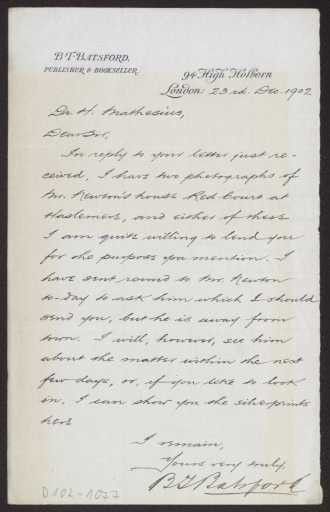 B.T. BATSFORD,
PUBLISHER & BOOKSELLER.
94 High Holborn
London: 23rd. Dec. 1902
Dr. H. Mathesius,
Dear Sir,
In reply to your letter just re-
ceived, I have two photographs of
Mr. Newton's house Red Court at
Haslemere, and either of these
I am quite willing to lend you
for the purpose you mention. I
have sent round to Mr. Newton
to-day to ask him which I should
send you, but he is away from
town. I will, however, see him
about the matter within the next
few days, or, if you like to look
in, I can show you the silverprints
here
I remain,
Yours very truly,
B T Batsford
D 102-1027